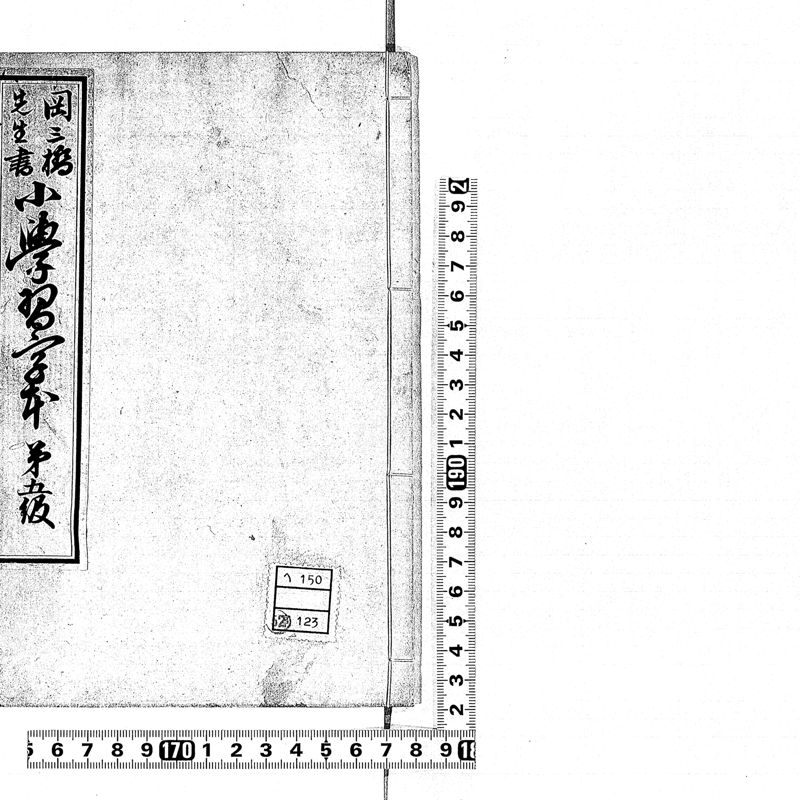 岡三橋
先生書
小學習字本 第五級
ヘ 150
123
2
9
8
7
6
5
4
3
2
1
190
9
8
7
6
5
4
3
2
6 7 8 9 170 1 2 3 4 5 6 7 8 9 18